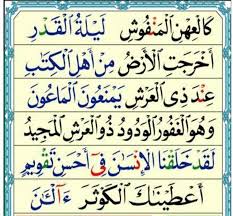 كَالْعِهْنِ الْمَنْفُوشِ لَيْلَةُ الْقَدْرِ
أَخْرَجَتِ الْأَرْضُ مِنْ أَهْلِ الْكِتٰبِ
عِنْدَ ذِي الْعَرْشِ يَمْنَعُونَ الْمَاعُونَ
وَهُوَ الْغَفُورُ الْوَدُودُ ذُو الْعَرْشِ الْمَجِيدُ
لَقَدْ خَلَقْنَا الْإِنْسٰنَ فِيٓ أَحْسَنِ تَقْوِيمٍ
أَعْطَيْنٰكَ الْكَوْثَرَ ءَآلْـٰٔنَ